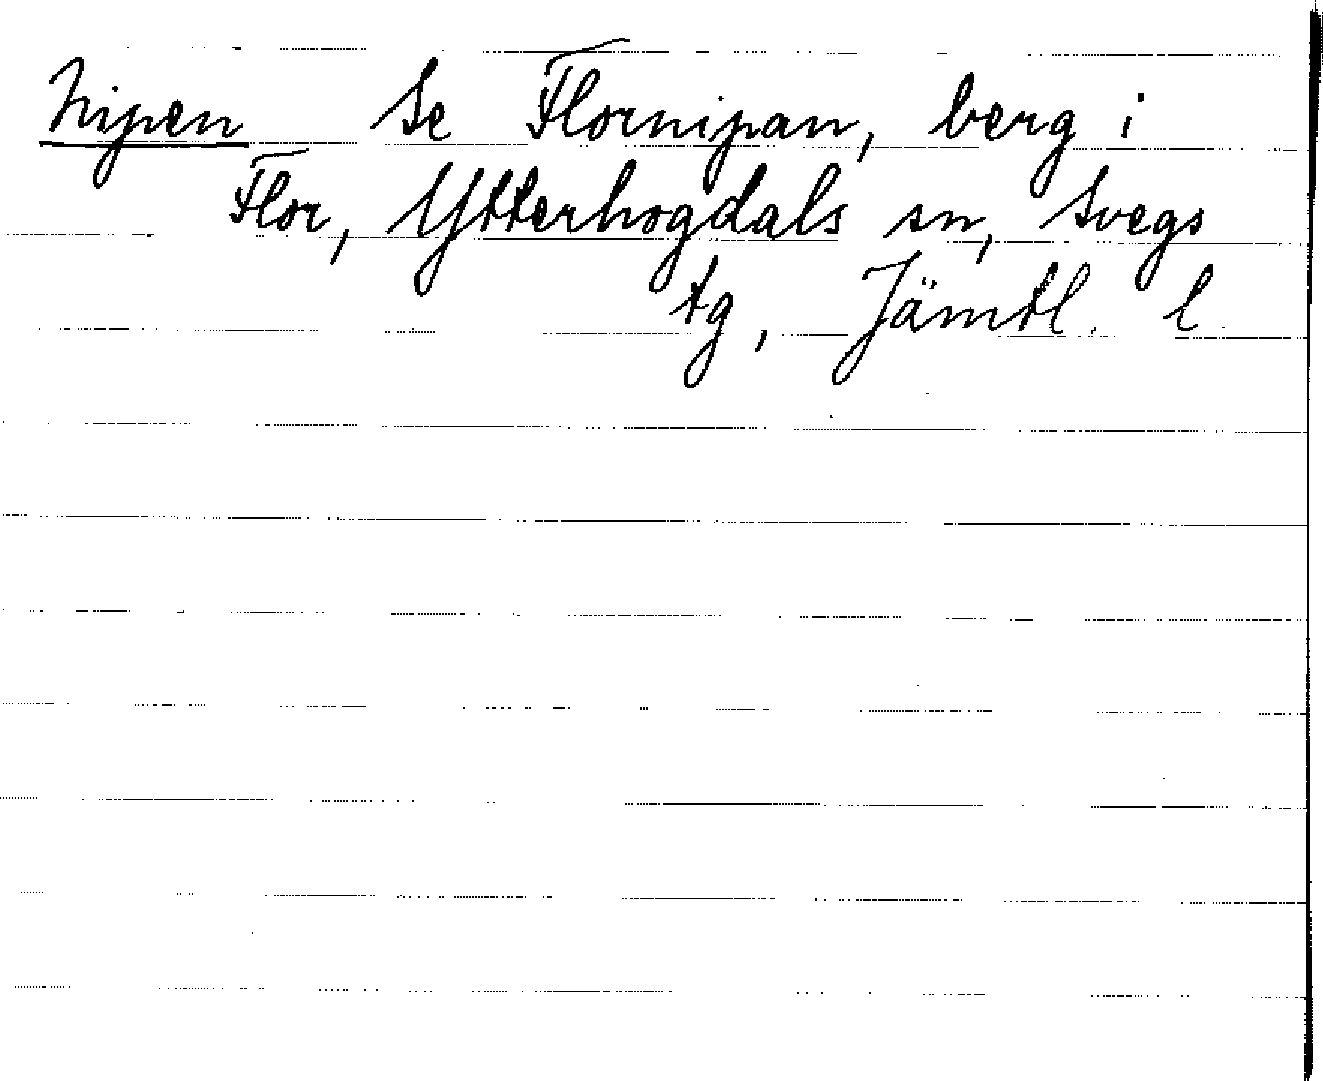 Nipen Se Flornipan, berg i
Flor, Ytterhogdals sn, Svegs
tg, Jämtl. l